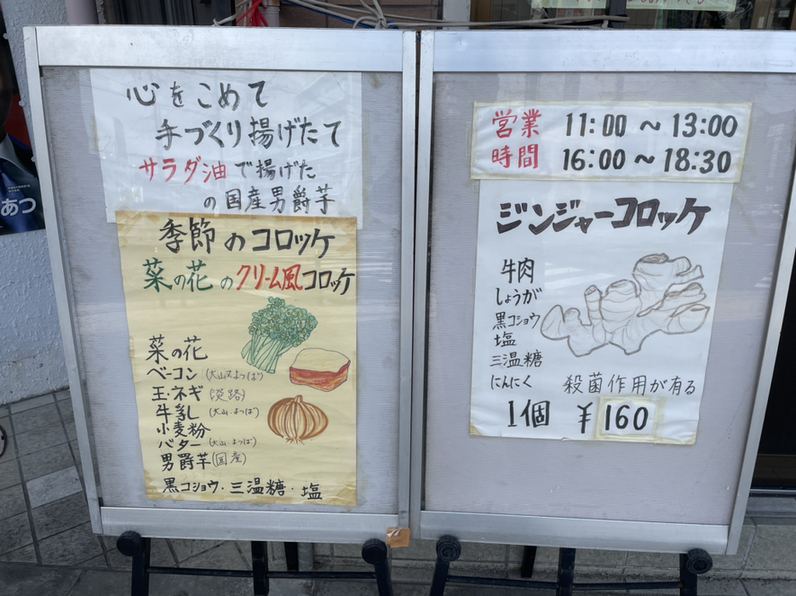 心をこめて
手づくり揚げたて
サラダ油で揚げた
の国産男爵芋
季節のコロッケ
菜の花のクリーム風コロッケ
菜の花
ベーコン(大山又よつば)
玉ネギ(淡路)
牛乳(大山・よつば)
小麦粉
バター(大山・よつば)
男爵芋(国産)
黒コショウ・三温糖・塩
営業時間 11:00～13:00
16:00～18:30
ジンジャーコロッケ
牛肉
しょうが
黒コショウ
塩
三温糖
にんにく
殺菌作用が有る
1個 ¥160
あつ